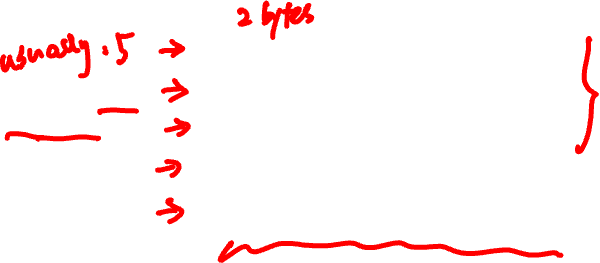 2 bytes
usually : 5